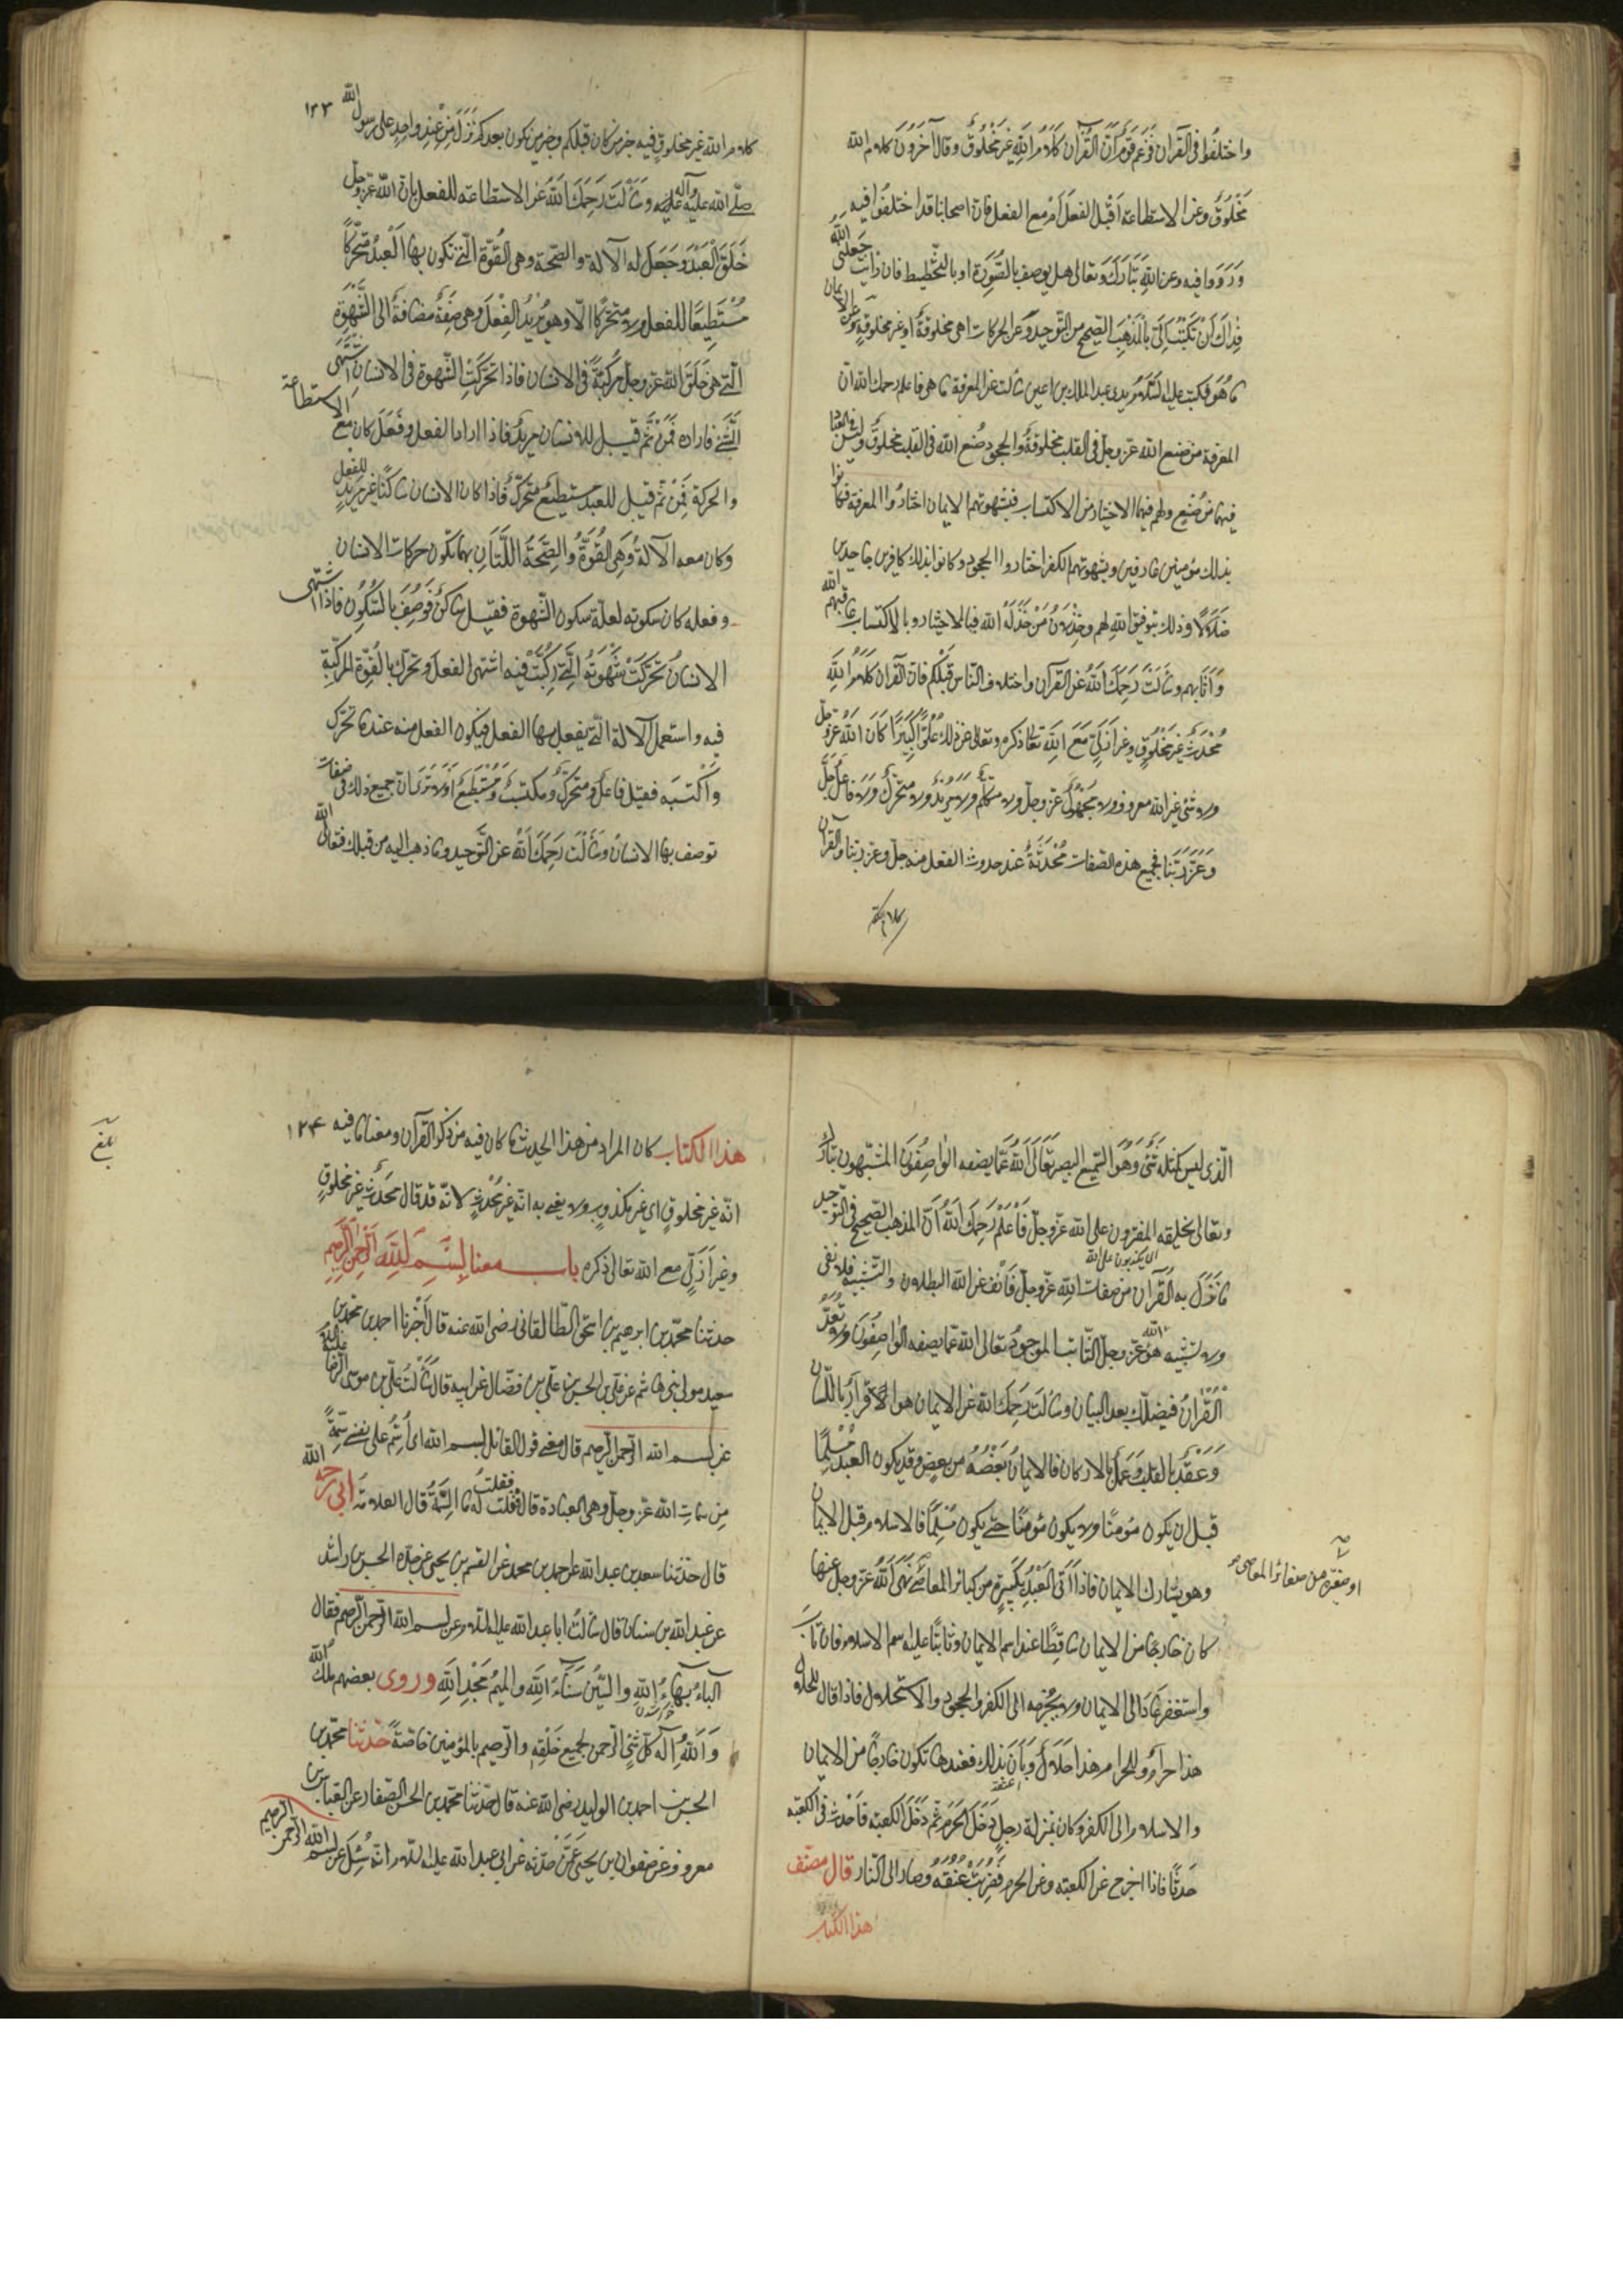 واختلفوا في القرآن فزعم قوم أن القرآن كلام الله غير مخلوق وقال آخرون كلام الله
مخلوق وعن الاستطاعة أقبل الفعل أم مع الفعل فان اصحابنا قد اختلفوا فيه
ورووا فيه وعن الله تبارك وتعالى هل يوصف بالصورة او بالتخطيط فان رأيت جعلني الله
فداك أن تكتب إلي بالمذهب الصحيح من التوحيد وعن الحركات اهي مخلوقة او غير مخلوقة وعن الايمان
ما هو فكتب عليه السلام على يدي عبد الملك بن اعين سألت عن المعرفة ما هي فاعلم رحمك الله ان
المعرفة من صنع الله عز وجل في القلب مخلوقة والجحود صنع الله في القلب مخلوق وليس للعباد
فيهما من صنع ولهم فيهما الاختيار من الاكتساب فبشهوتهم الايمان اختاروا المعرفة فكانوا
بذلك مؤمنين عارفين وبشهوتهم الكفر اختاروا الجحود وكانوا بذلك كافرين جاحدين
ضلالا وذلك بتوفيق الله لهم وخذلان من خذله الله فبالاختيار وبالاكتساب عاقبهم الله
وأثابهم وسألت رحمك الله عن القرآن واختلاف الناس قبلكم فان القرآن كلام الله
محدث غير مخلوق وغير ازلي مع الله تعالى ذكره وتعالى عن ذلك علوا كبيرا كان الله عز وجل
ولا شئ غير الله معروف ولا مجهول كان عز وجل ولا متكلم ولا مريد ولا متحرك ولا فاعل جل
وعز ربنا فجميع هذه الصفات محدثة عند حدوث الفعل منه جل وعز ربنا والقرآن
كلام الله
١٢٣
كلام الله غير مخلوق فيه خبر من كان قبلكم وخبر من يكون بعدكم نزل من عند واحد على رسول الله
صلى الله عليه وآله وسألت رحمك الله عن الاستطاعة للفعل فان الله عز وجل
خلق العبد وجعل له الآلة والصحة وهي القوة التي تكون بها العبد متحركا
مستطيعا للفعل ولا متحركا الا وهو يريد الفعل وهي صفة مضافة الى الشهوة
التي هي خلق الله عز وجل مركبة في الانسان فاذا تحركت الشهوة في الانسان اشتهى
الشئ فاراده فمن ثم قيل للانسان مريد فاذا اراد الفعل وفعل كان مع الاستطاعة
والحركة فمن ثم قيل للعبد مستطيع متحرك فاذا كان الانسان ساكنا غير مريد للفعل
وكان معه الآلة وهي القوة والصحة اللتان بهما تكون حركات الانسان
وفعله كان سكونه لعلة سكون الشهوة فقيل ساكن فوصف بالسكون فاذا اشتهى
الانسان وتحركت شهوته التي ركبت فيه اشتهى الفعل وتحرك بالقوة المركبة
فيه واستعمل الآلة التي يفعل بها الفعل فيكون الفعل منه عند ما تحرك
واكتسبه فقيل فاعل ومتحرك ومكتسب ومستطيع اولا ترى ان جميع ذلك صفات
توصف بها الانسان وسألت رحمك الله عن التوحيد وما ذهب اليه من قبلك فتعالى الله
الذي ليس كمثله شئ وهو السميع البصير تعالى الله عما يصفه الواصفون المشبهون تبارك
وتعالى بخلقه المفترون على الله عز وجل فاعلم رحمك الله أن المذهب الصحيح في التوحيد
اي يكذبون على الله
ما نزل به القرآن من صفات الله عز وجل فانف عن الله البطلان والتشبيه فلا نفي
ولا تشبيه هو الله عز وجل الثابت الموجود تعالى الله عما يصفه الواصفون ولا تعد
القرآن فيضلك بعد البيان وسألت رحمك الله عن الايمان هو الاقرار باللسان
وعقد بالقلب وعمل بالاركان فالايمان بعضه من بعض وقد يكون العبد مسلما
قبل ان يكون مؤمنا ولا يكون مؤمنا حتى يكون مسلما فالاسلام قبل الايمان
وهو يشارك الايمان فاذا أتى العبد بكبيرة من كبائر المعاصي نهى الله عز وجل عنها
او صغيرة من صغائر المعاصي
كان خارجا من الايمان ساقطا عنه اسم الايمان وثابتا عليه اسم الاسلام فان تاب
واستغفر عاد الى الايمان ولا يخرجه الى الكفر الا الجحود والاستحلال فاذا قال للحلال
هذا حرام وللحرام هذا حلال ودان بذلك فعندها يكون خارجا من الايمان
والاسلام الى الكفر وكان بمنزلة رجل دخل الحرم ثم دخل الكعبة فاحدث في الكعبة
حدثا فاذا اخرج عن الكعبة وعن الحرم فضربت عنقه وصار الى النار قال مصنف
هذا الكتاب
١٢۴
بلغ
هذا الكتاب كان المراد من هذا الحديث ما كان فيه من ذكر القرآن ومعنا ما فيه
انه غير مخلوق اي غير مكذوب ولا يعني به انه غير محدث لانه قد قال محدث غير مخلوق
وغير أزلي مع الله تعالى ذكره باب معنا بسم الله الرحمن الرحيم
حدثنا محمد بن ابرهيم بن اسحق الطالقاني رضي الله عنه قال أخبرنا احمد بن محمد بن
سعيد مولى بني هاشم عن علي بن الحسن بن علي بن فضال عن ابيه قال سألت علي بن موسى الرضا عليه السلام
عن بسم الله الرحمن الرحيم قال معنى قول القائل بسم الله اي أسم على نفسي سمة
من سمات الله عز وجل وهي العبادة قال فقلت له ما السمة قال العلامة ابي رحمه الله
قال حدثنا سعد بن عبد الله عن احمد بن محمد عن القسم بن يحيى عن جده الحسن بن راشد
عن عبد الله بن سنان قال سألت ابا عبد الله عليه السلام عن بسم الله الرحمن الرحيم فقال
الباء بهاء الله والسين سناء الله والميم مجد الله وروى بعضهم ملك الله
والله إله كل شئ الرحمن لجميع خلقه والرحيم بالمؤمنين خاصة حدثنا محمد بن
الحسن بن احمد بن الوليد رضي الله عنه قال حدثنا محمد بن الحسن الصفار عن العباس بن
معروف عن صفوان بن يحيى عمن حدثه عن ابي عبد الله عليه السلام انه سئل عن بسم الله الرحمن الرحيم